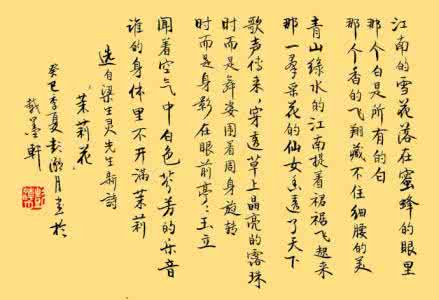 江南的雪花落在蜜蜂的眼里
那个白是所有的白
那个香的飞翔藏不住细腰的美
青山綠水的江南提着裙裾飞起来
那一群采花的仙女香透了天下
歌声传来,穿透草上晶亮的露珠
时而是舞姿围着周身旋转
时而是身影在眼前亭亭玉立
闻着空气中白色芬芳的乐音
谁的身体里不开满茉莉
选自梁生灵先生新詩
茉莉花
癸巳季夏彭月书于
墨軒